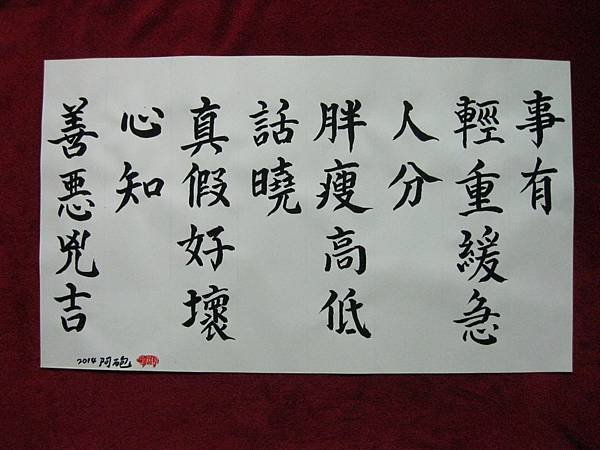 事有
輕重緩急
人分
胖瘦高低
話曉
真假好壞
心知
善惡兇吉
2014 阿砲